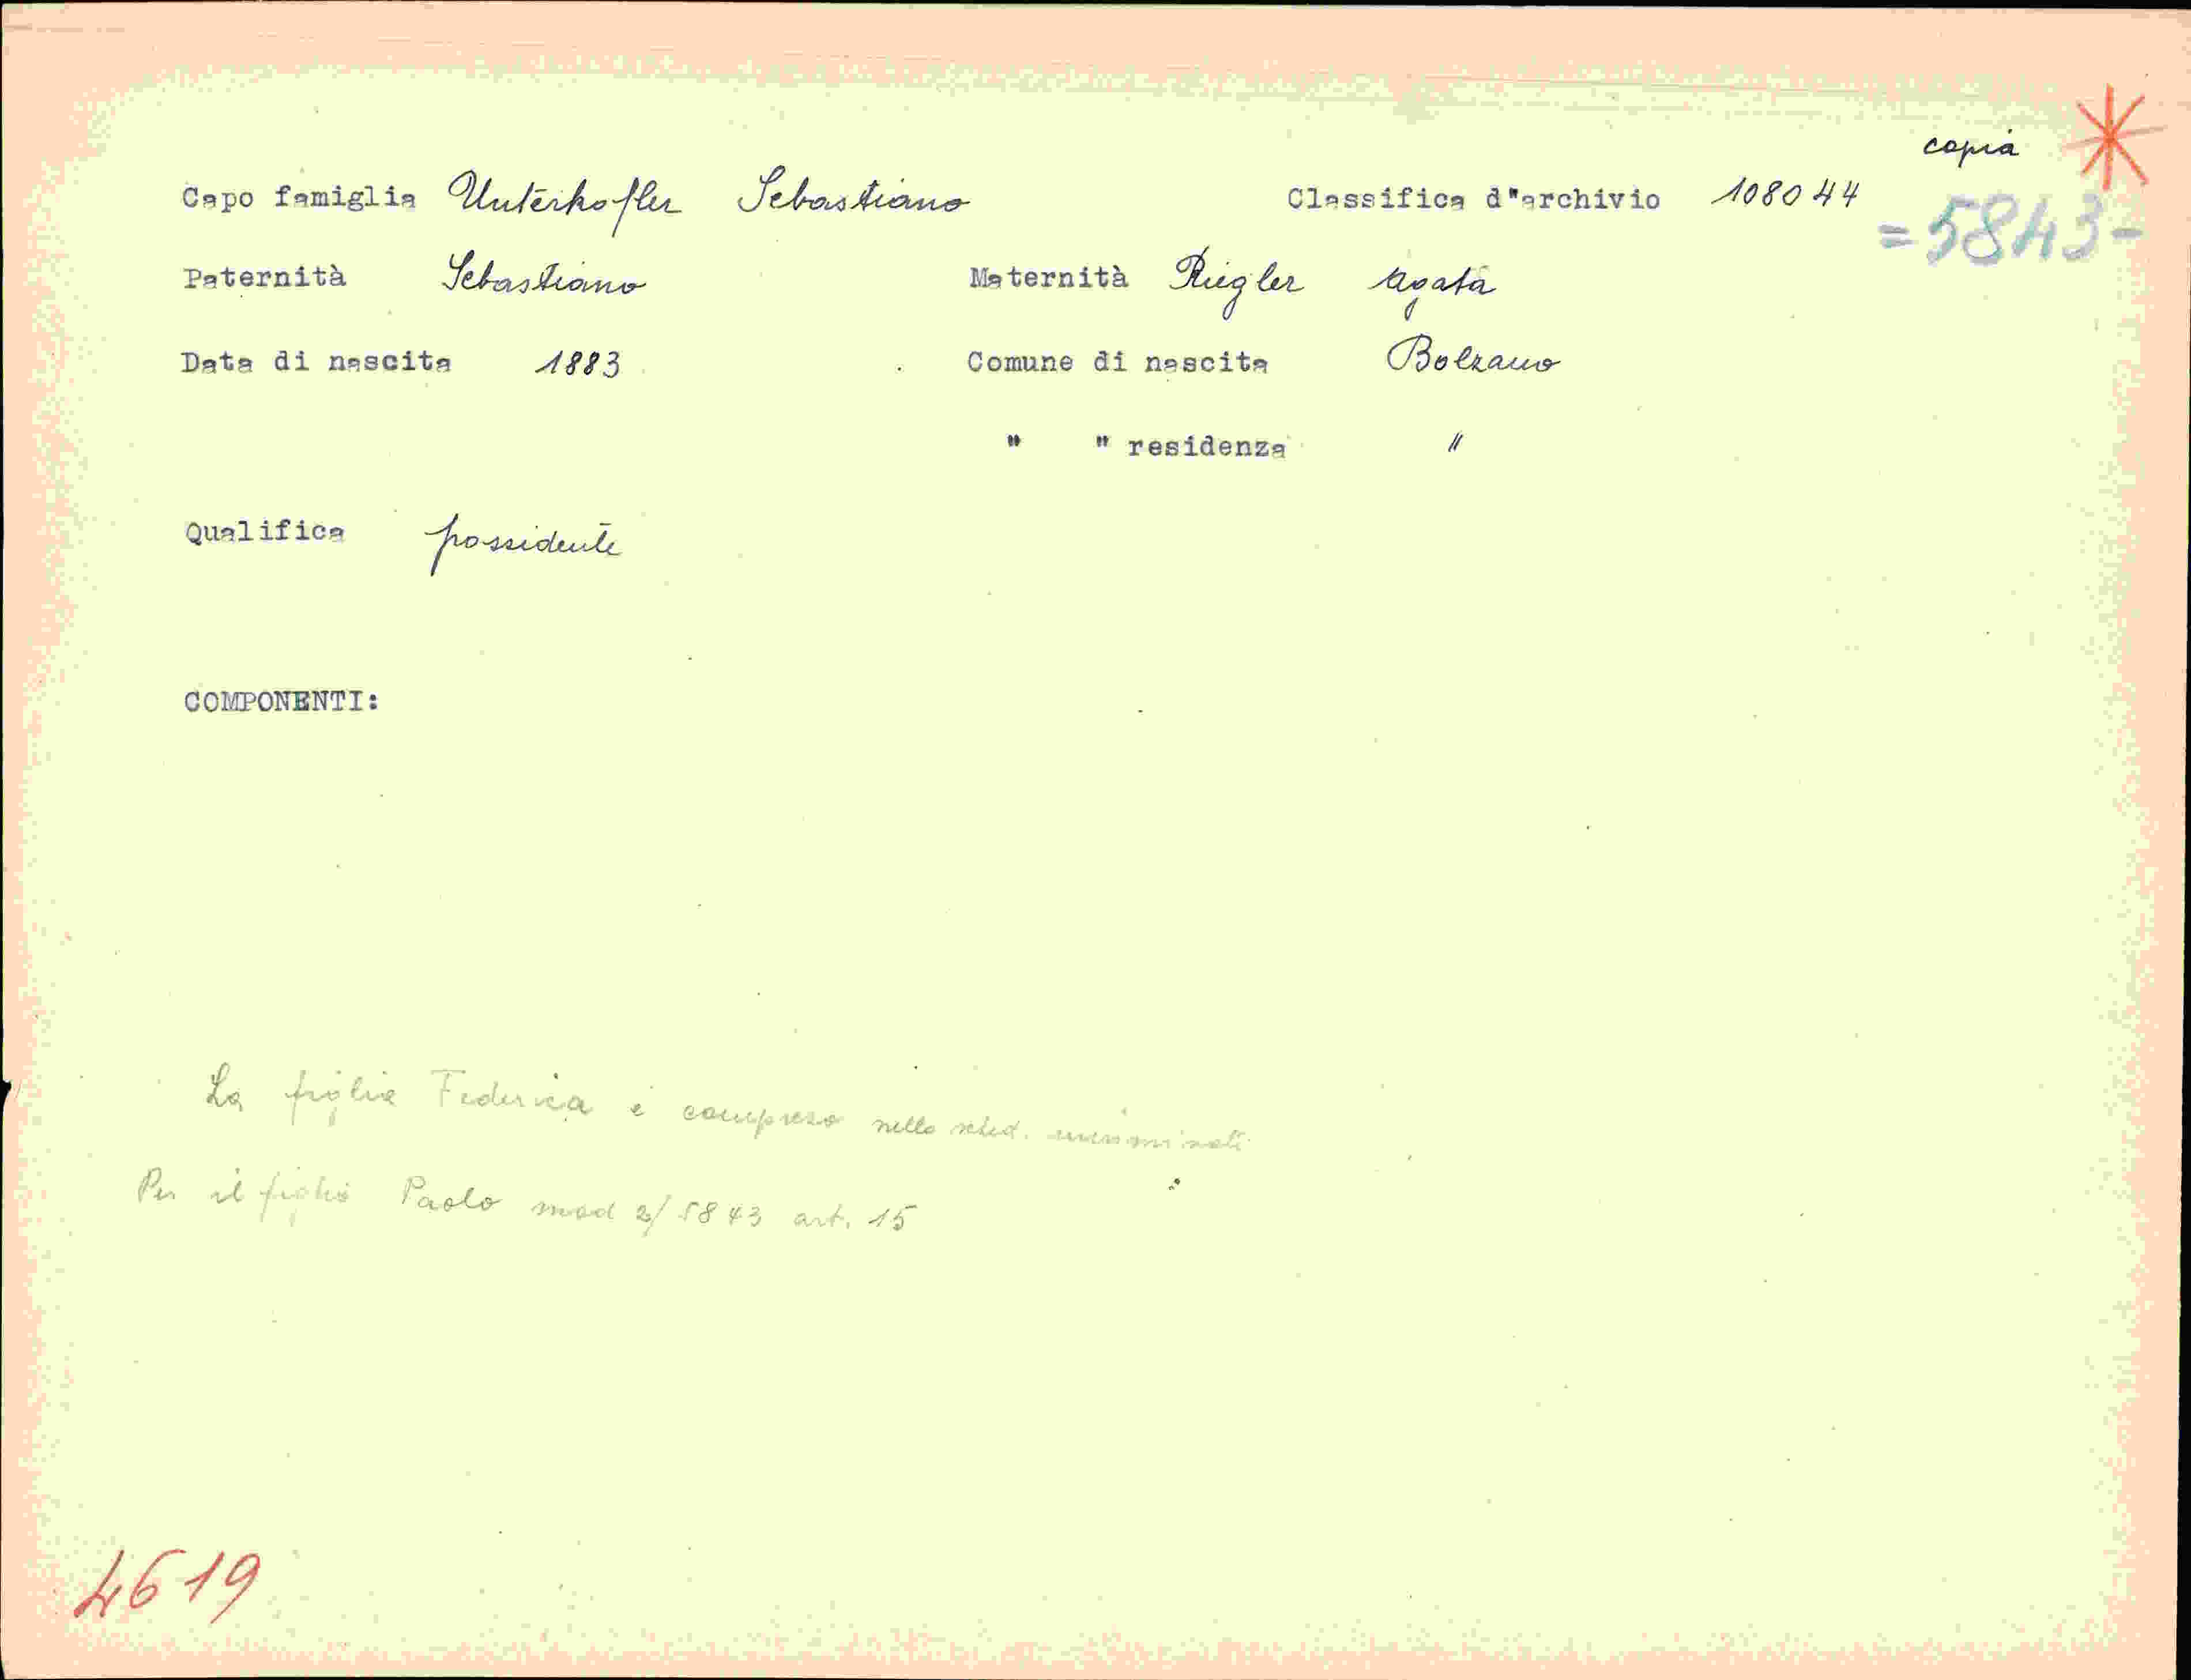 copia
Capo famiglia Unterhofler Sebastiano Classifica d"archivio 108044
=5843-
Paternità Sebastiano Maternità Riegler Agata
Data di nascita 1883 Comune di nascita Bolzano
" " residenza "
Qualifica possidente
COMPONENTI:
La figlia Federica è compreso nello sched.
Per il figlio Paolo mod 2/5843 art. 15
4619